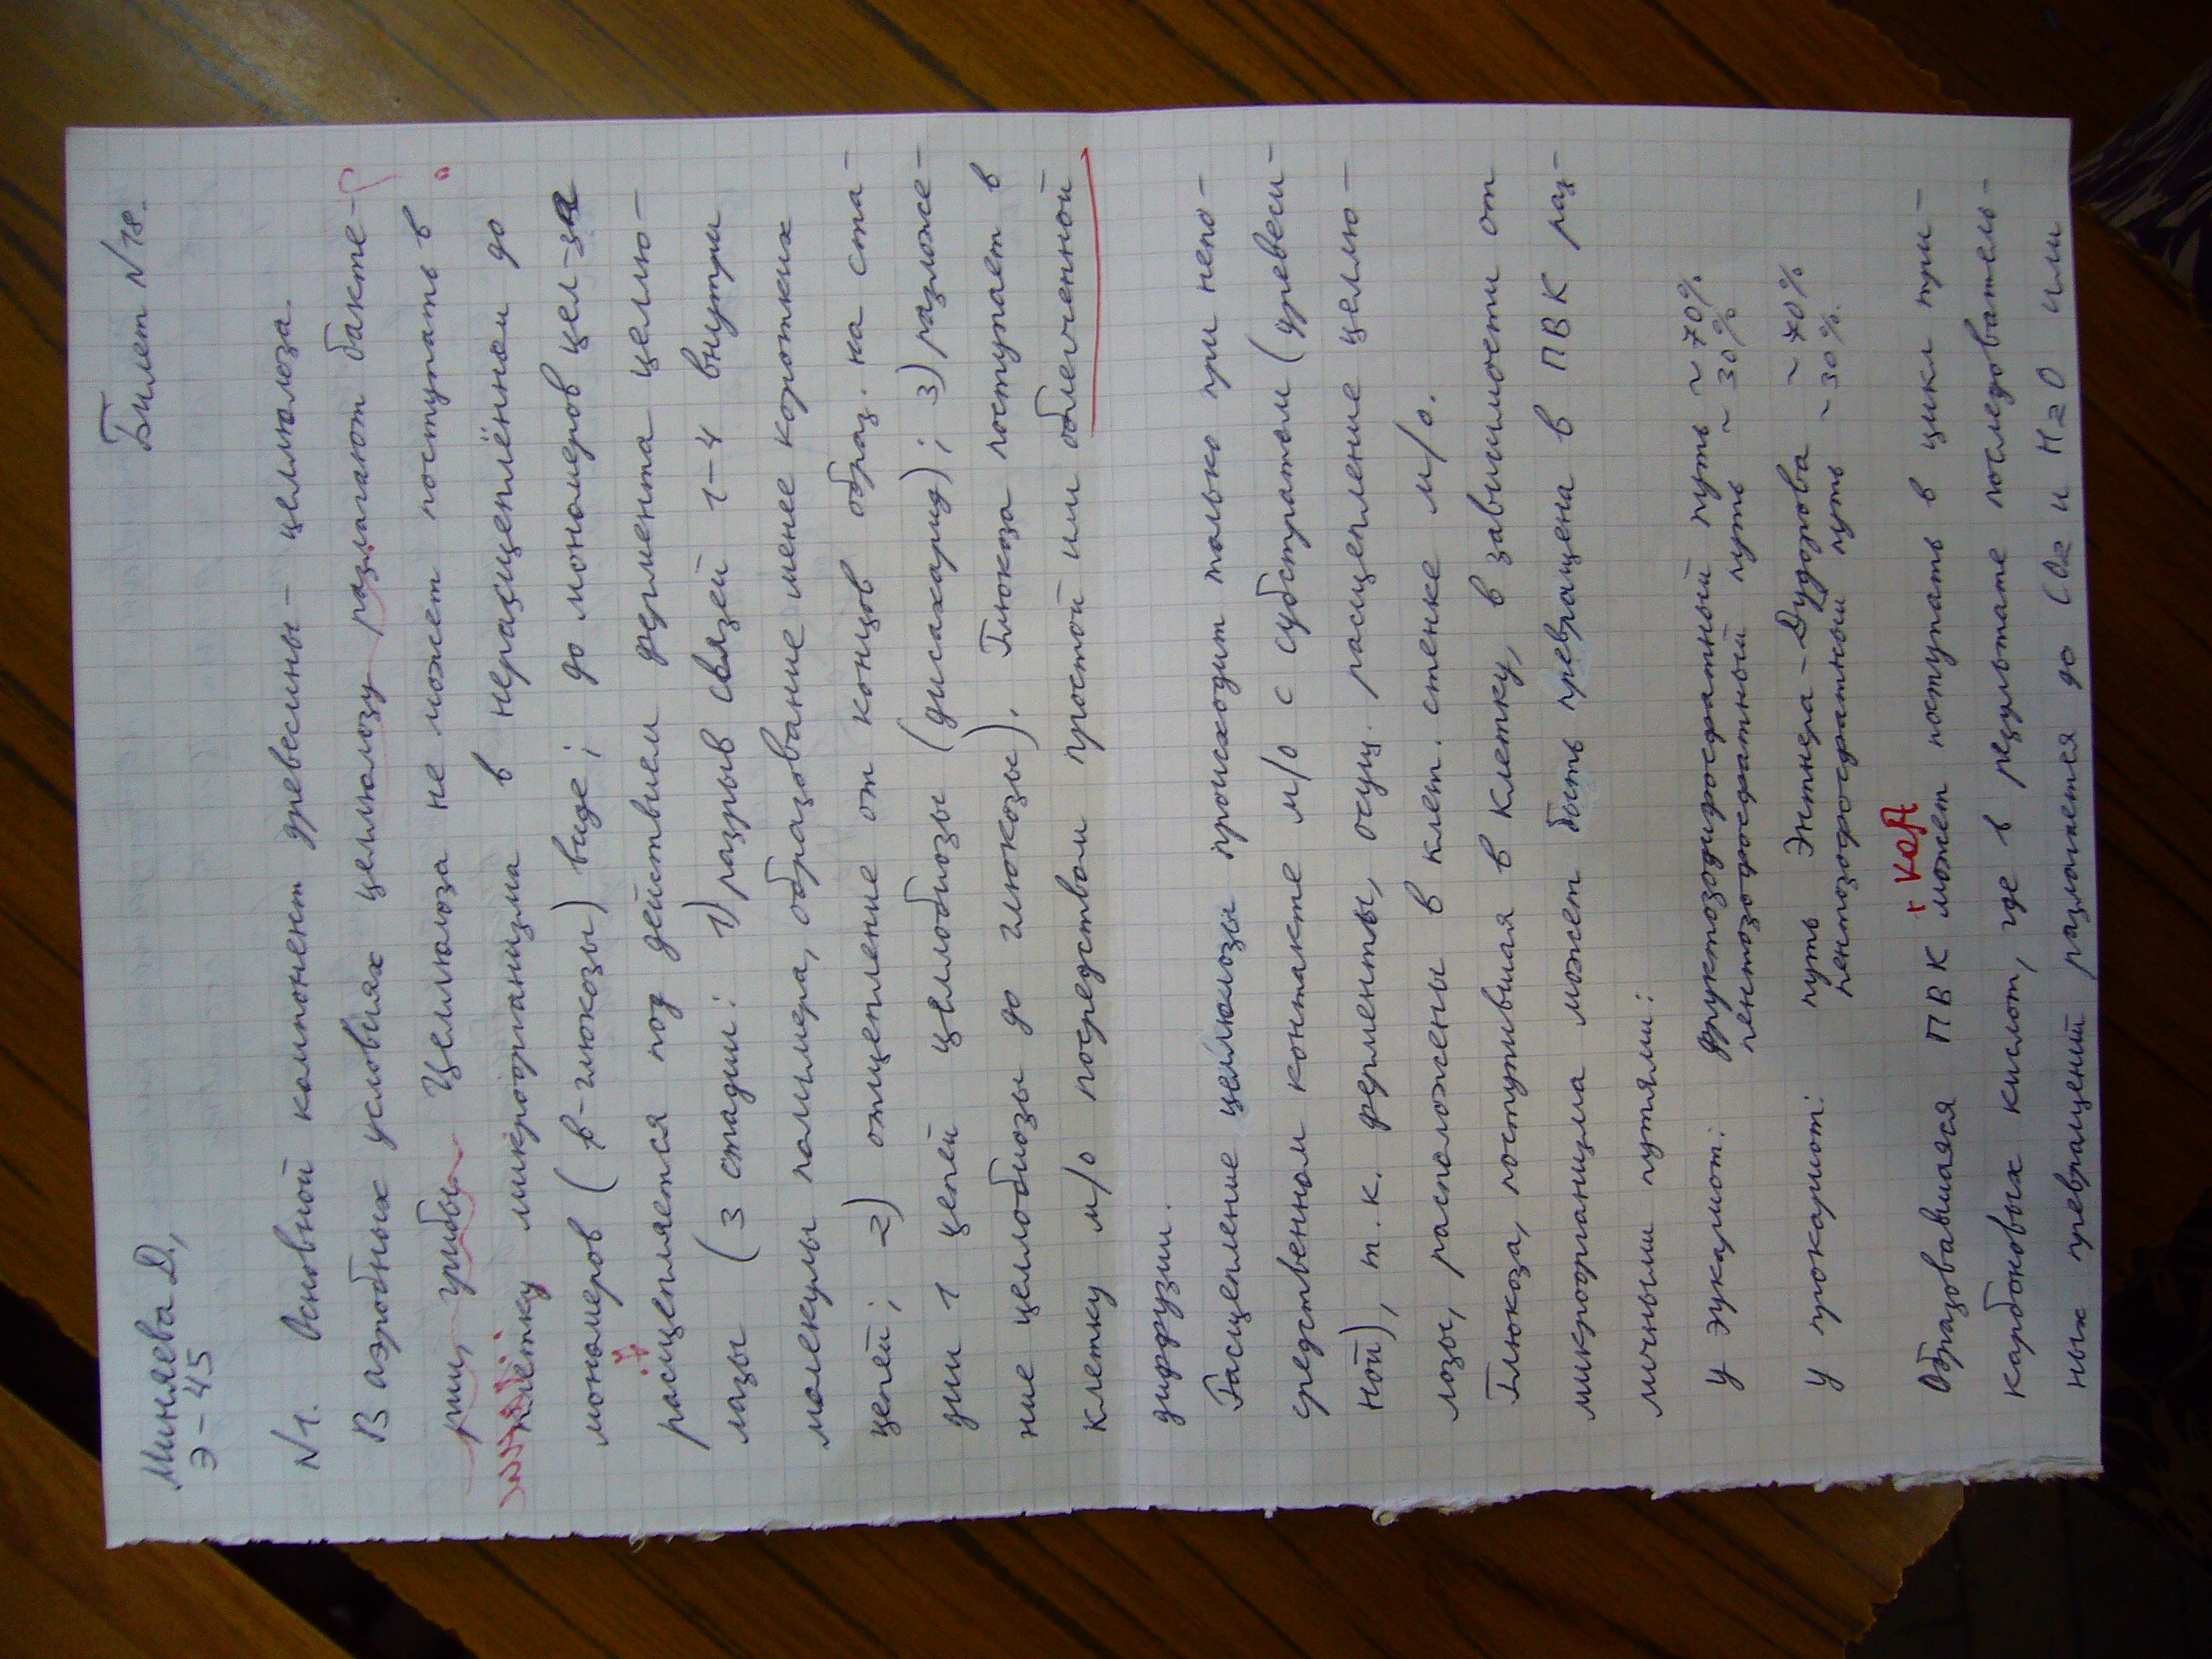 Миняева Д., Билет N 18.
Э-45
N1. Основной компонент древесины - целлюлоза.
В аэробных условиях целлюлозу разлагают бакте-
рии, грибы. Целлюлоза не может поступать в
клетку микроорганизма в нерасщеплённом до
мономеров (β-глюкозы) виде; до мономеров цел-за
расщепляется под действием фермента целлю-
лазы (3 стадии: 1) разрыв связей 1-4 внутри
молекулы полимера, образование менее коротких
цепей; 2) отщепление от концов образ. на ста-
дии 1 цепей целлобиозы (дисахарид); 3) разложе-
ние целлобиозы до глюкозы). Глюкоза поступает в
клетку м/о посредством простой или облегченной
диффузии.
Расщепление целлюлозы происходит только при непо-
средственном контакте м/о с субстратом (древеси-
ной), т.к. ферменты, осущ. расщепление целлю-
лозы, расположены в клет. стенке м/о.
Глюкоза, поступившая в клетку, в зависимости от
микроорганизма может быть превращена в ПВК раз-
личными путями:
у эукариот: фруктозодифосфатный путь ~ 70%
пентозофосфатный путь ~ 30%
у прокариот: путь Энтнера-Дудорова ~ 70%
пентозофосфатный путь ~ 30%.
+ КоА
Образовавшаяся ПВК может поступать в цикл три-
карбоновых кислот, где в результате последователь-
ных превращений разложется до CO2 и H2O или